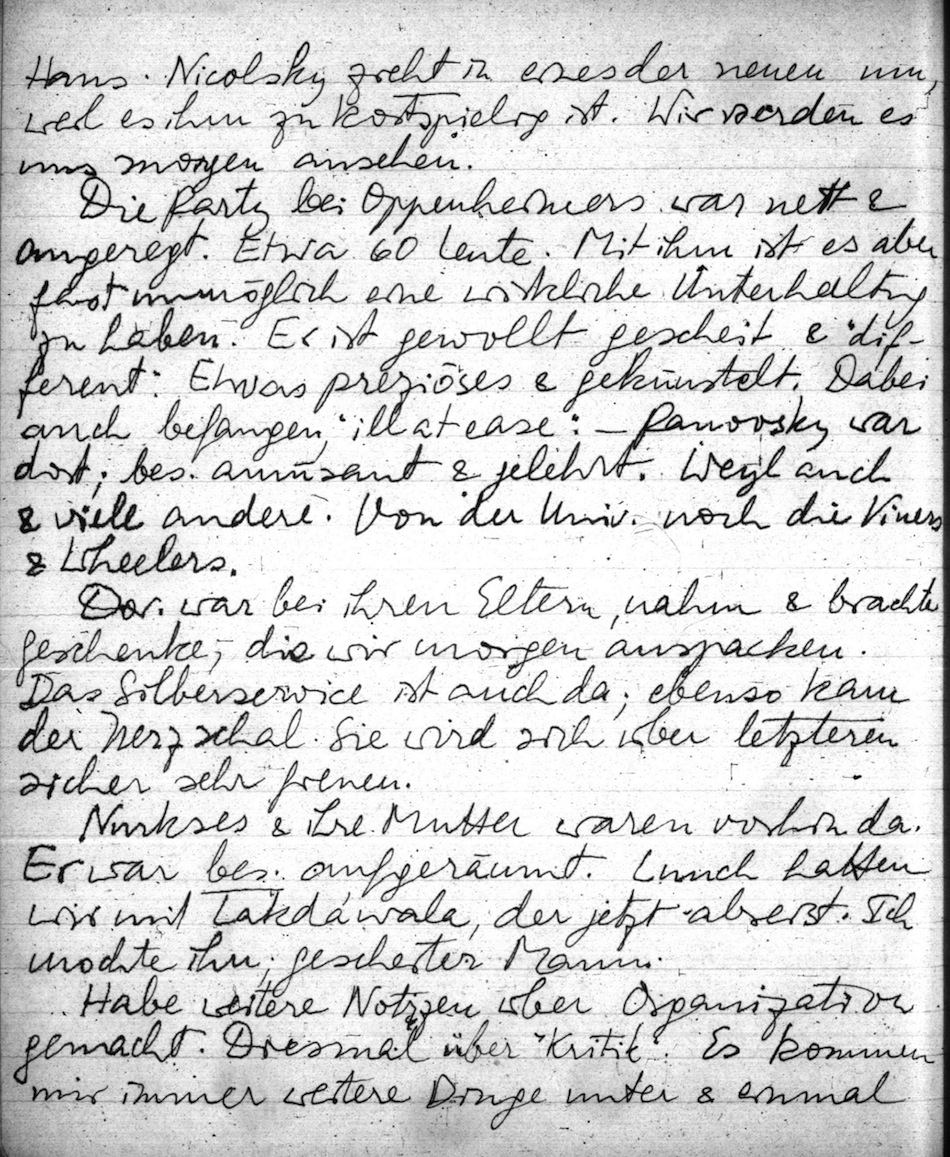 Haus. Nicolsky zieht in eines der neuen um,
weil es ihm zu kostspielig ist. Wir werden es
uns morgen ansehen.
Die Party bei Oppenheimers war nett &
angeregt. Etwa 60 Leute. Mit ihm ist es aber
fast unmöglich eine wirkliche Unterhaltung
zu haben. Er ist gewollt gescheit & "dif-
ferent". Etwas preziöses & gekünstelt. Dabei
auch befangen, "ill at ease". – Panovsky war
dort, bes. amüsant & gelehrt. Weyl auch
& viele andere. Von der Univ. noch die Viners
& Wheelers.
Dor. war bei ihren Eltern, nahm & brachte
Geschenke, die wir morgen auspacken.
Das Silberservice ist auch da; ebenso kam
der Nerzschal. Sie wird sich über letzteren
sicher sehr freuen.
Nurkses & ihre Mutter waren vorhin da.
Er war bes. aufgeräumt. Lunch hatten
wir mit Lakdawala, der jetzt abreist. Ich
mochte ihn; gescheiter Mann.
Habe weitere Notizen über Organization
gemacht. Diesmal über "Kritik". Es kommen
mir immer weitere Dinge unter & einmal